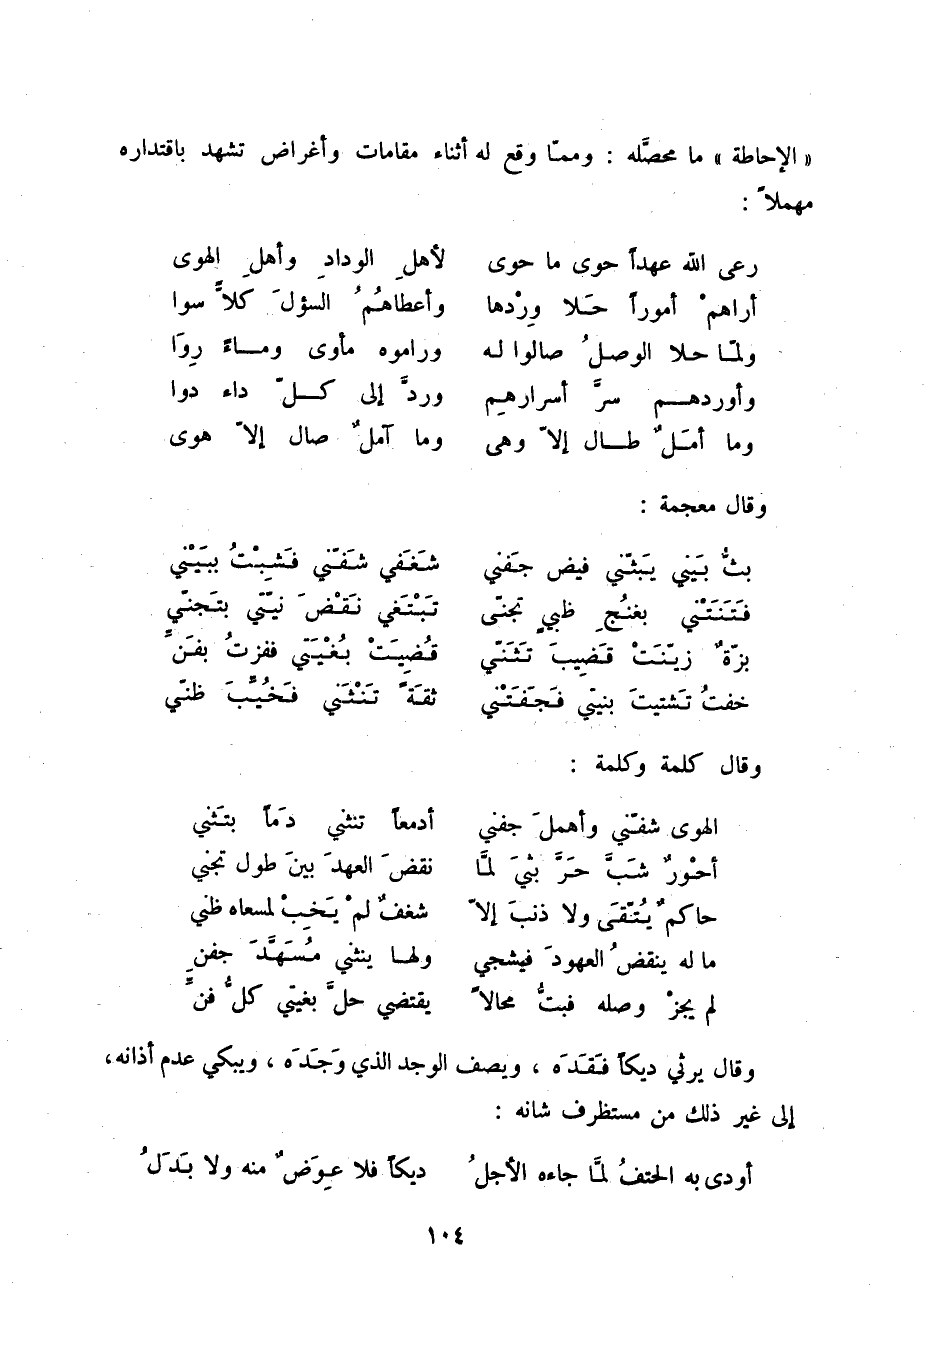 « الإحاطة » ما محصَّله : وممّا وقع له أثناء مقامات وأغراض تشهد باقتداره
مهملاً :
رعى الله عهداً حوى ما حوى لأهلِ الودادِ وأهلِ الهوى
أراهمْ أموراً حَلا وِرْدها وأعطاهُمُ السؤلَ كلاًّ سوا
ولمّا حلا الوصلُ صالوا له وراموه مأوى ومـاءً رِوَا
وأوردهـم سرَّ أسرارهـم وردَّ إلى كـلّ داء دوا
وما أمَلٌ طـال إلاّ وهى وما آملٌ صال إلاّ هوى
وقال معجمة :
بثُّ بَيني يَبثّني فيض جَفني شَغَفي شَفّني فشِبْتُ ببَيْني
فَتَنَتْني بغنْجِ ظبيٍ تجنّى تَبْتَغي نَقْضَ نيّتي بتَجنّي
بزّةٌ زيّنَتْ قَضيبَ تَثَنّي قُضيَتْ بُغْيَتي ففزتُ بفَنِّ
خفتُ تَشتيتَ بنيتي فَجَفَتْني ثقَةً تَنْثَني فَخُيِّبَ ظنّي
وقال كلمة وكلمة :
الهوى شفّني وأهملَ جفني أدمعاً تنثني دَماً بتَثني
أحْورٌ شَبَّ حَرَّ بثيَ لمَّا نقضَ العهدَ بينَ طول تجني
حاكمٌ يُتّقَى ولا ذنبَ إلاّ شغفٌ لمْ يَخِبْ لمسعاه ظني
ما له ينقضُ العهودَ فيشجي ولهـا ينثني مُسَهَّدَ جفنِ
لم يجزْ وصله فبتُّ محالاً يقتضي حلَّ بغيتي كلُّ فنِّ
وقال يرثي ديكاً فَقَدَه ، ويصف الوجد الذي وَجَدَه ، ويبكي عدم أذانه،
إلى غير ذلك من مستظرف شانه :
أودى به الحتفُ لمّا جاءه الأجلُ ديكاً فلا عِوَضٌ منه ولا بَدَلُ
١٠٤